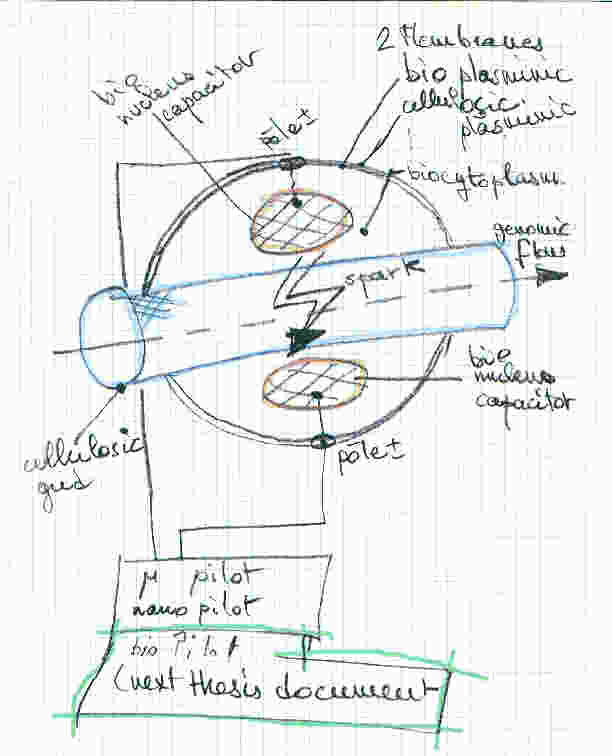 2 Membranes
bio plasminic
cellulosic
plasminic
bio
nucleus
capacitor
pôle±
biocytoplasm
genomic
flow
spark
bio
nucleus
capacitor
cellulosic
grid
pôle±
µ pilot
nano pilot
bio Pilot
(next thesis document